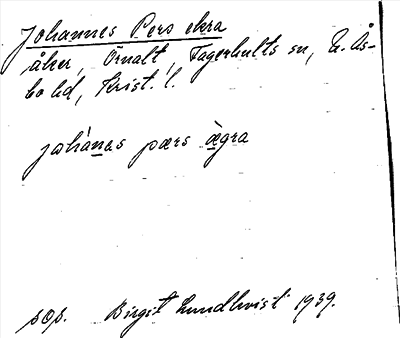 Johannes Pers ekra
åker, Örnalt, Fagerhults sn, N. Ås-
bo hd, Krist. l.
johánas pærs ægra
pop. Birgit Lundkvist 1939.